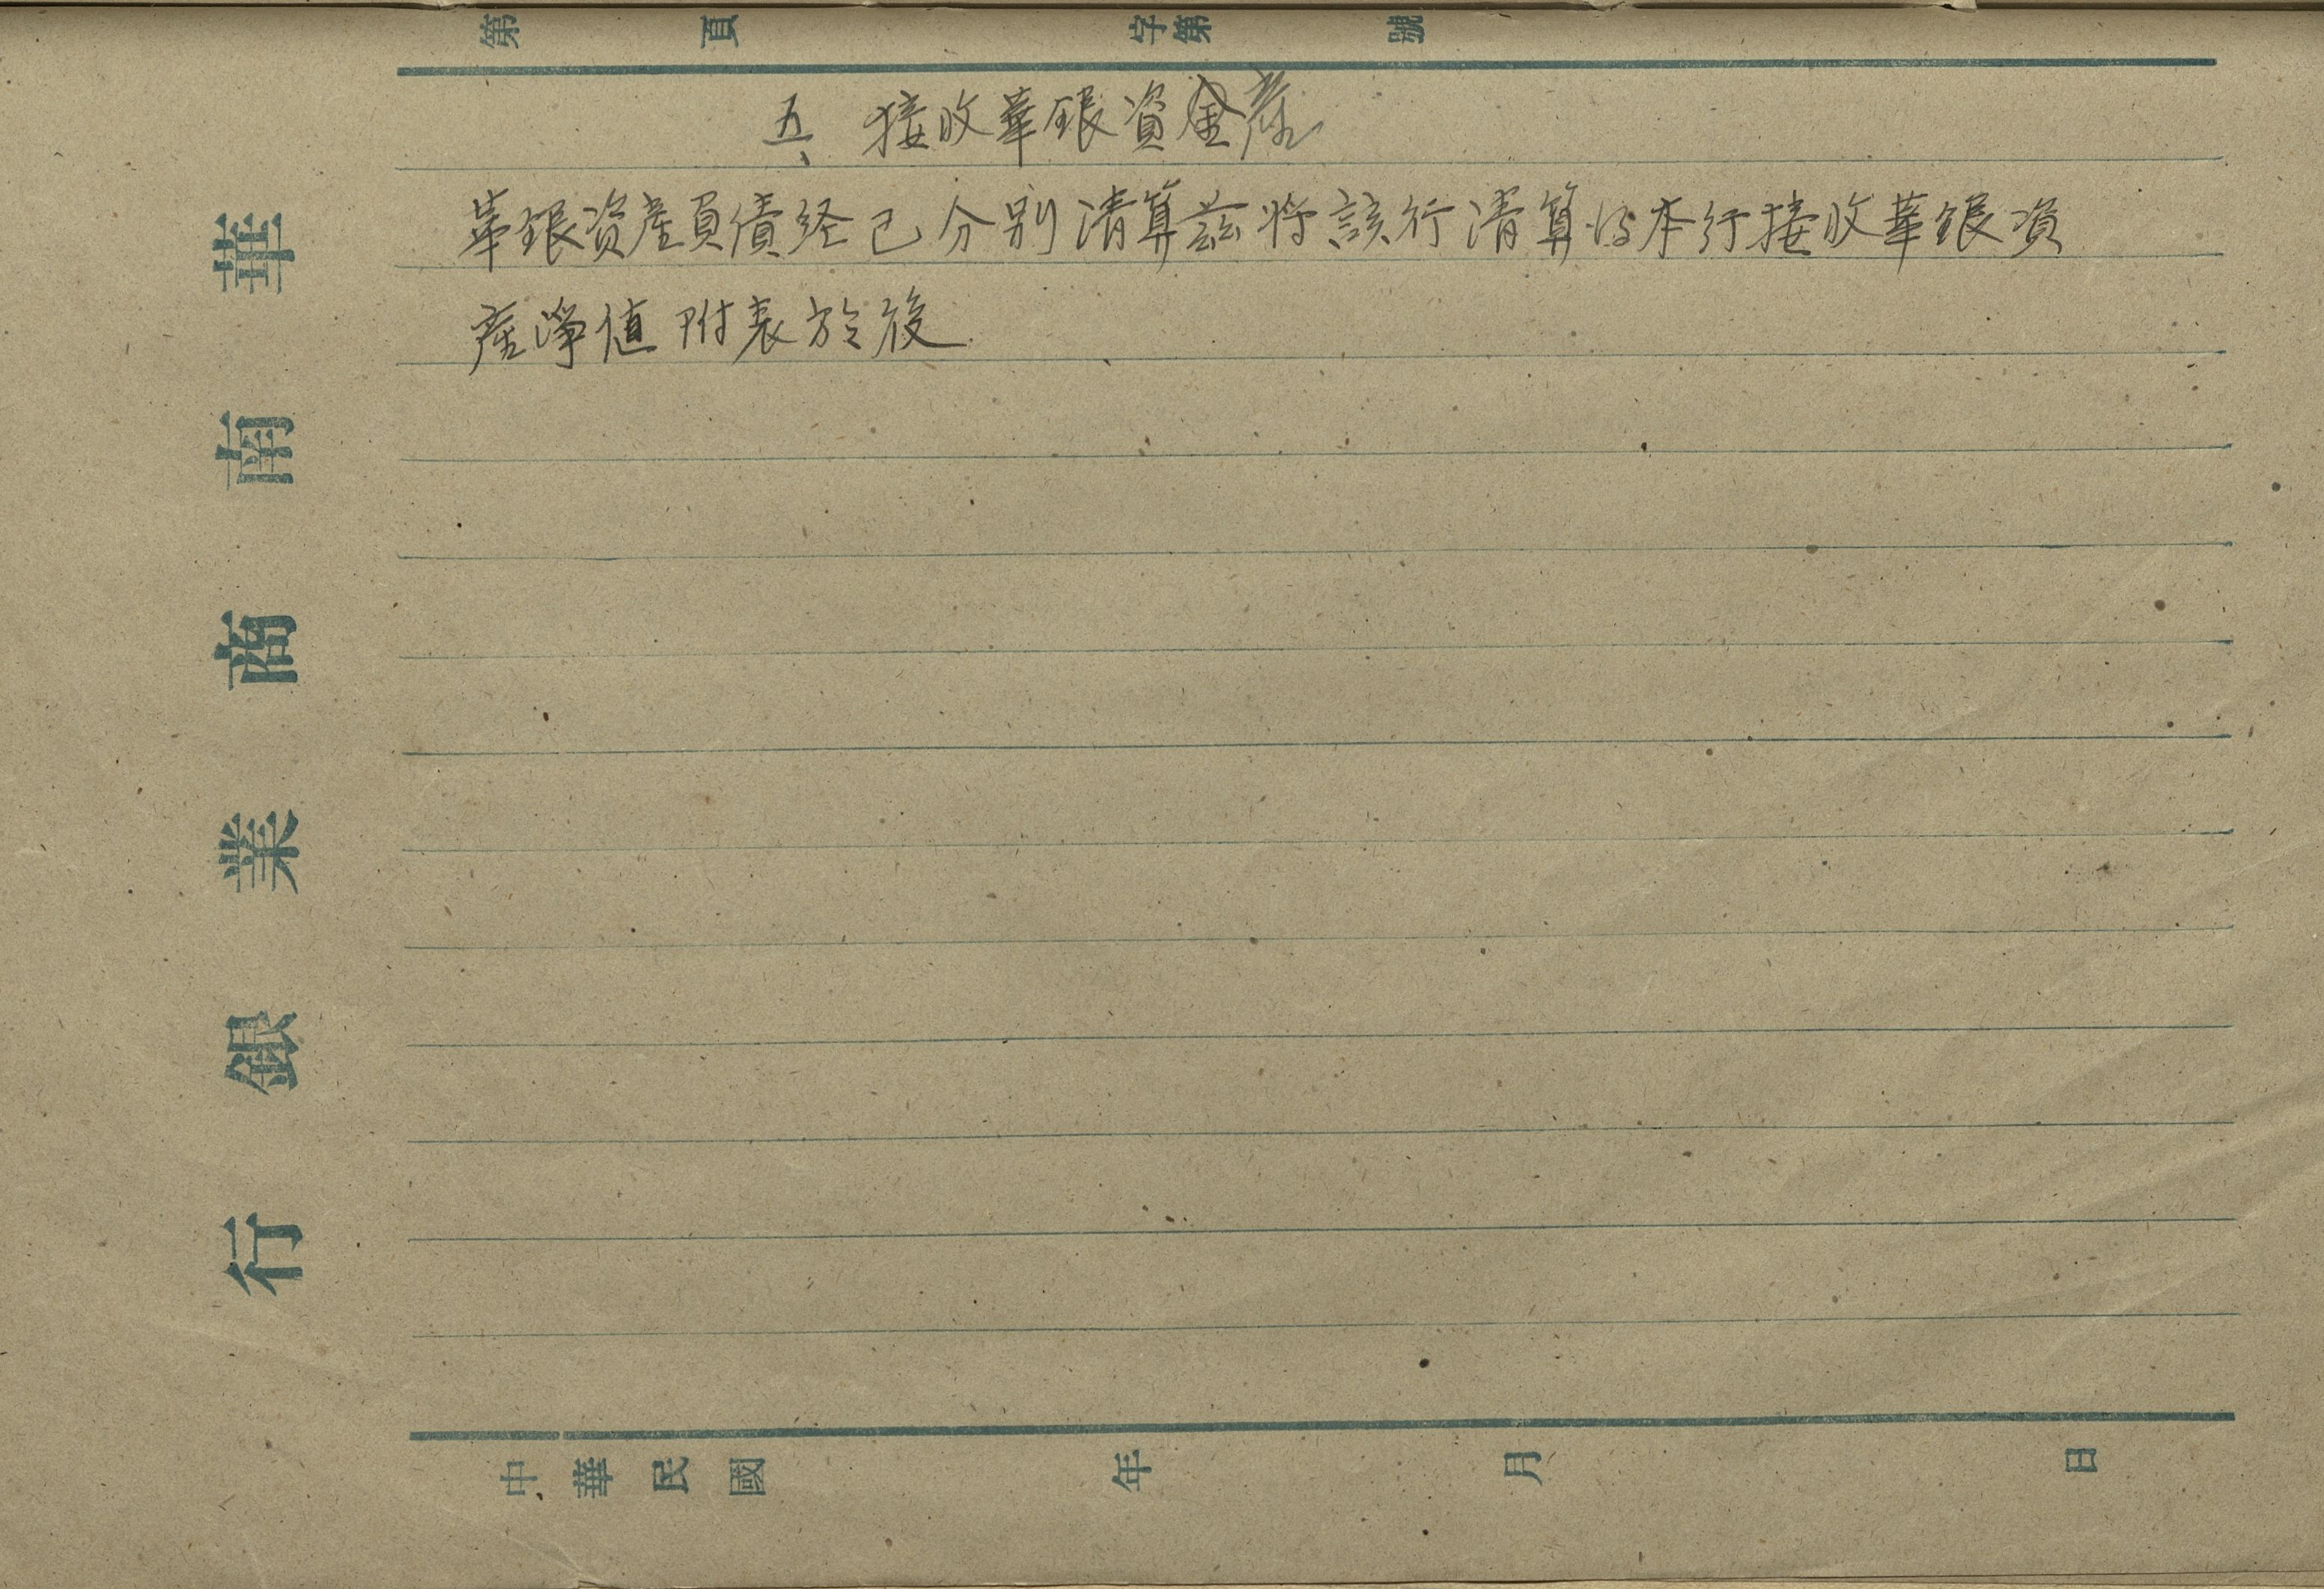 第 頁 字第 號
五、接收華銀資金產
華銀资產負債经已分别清算兹将該行清算後本行接收華銀資
產淨值附表於後
華南商業銀行
中華民國 年 月 日